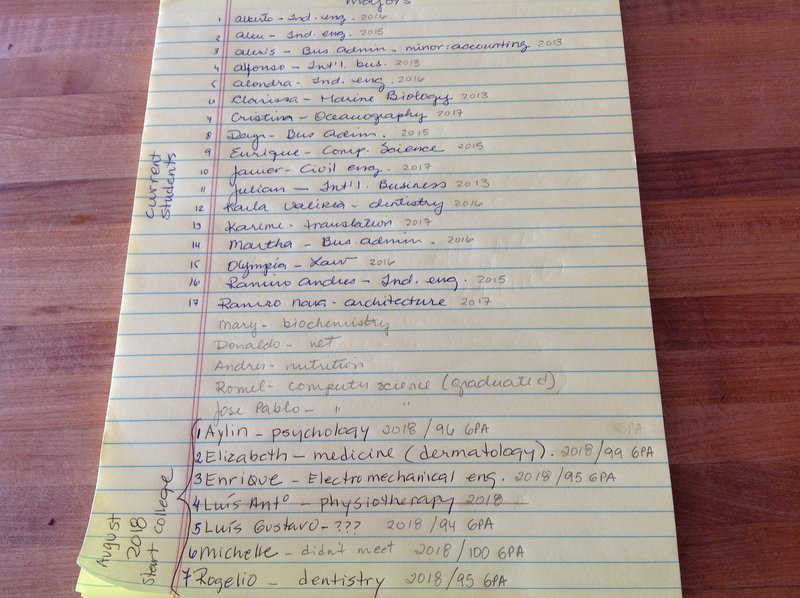 Majors
1 Alberto - Ind. eng. 2016
2 Ind. eng. 2015
3 Alexis - Bus. Admin - minor: accounting 2013
4 Alfonso - Int'l. bus. 2013
5 Alondra - Ind. eng. 2016
6 Clarissa - Marine Biology 2013
7 Cristina - Oceanography 2017
8 Bus Adim. 2015
9 Enrique - Comp. Science 2015
10 Javier - Civil eng. 2017
11 Julian - Int'l. Business 2013
12 Karla Valeria - dentistry 2016
13 Karime - translation 2017
14 Martha - Bus. admin. 2016
15 Olympia - Law 2016
16 Ramiro Andres - Ind. eng. 2015
17 Ramiro Nava - architecture 2017
Current
Students
Mary - biochemistry
Donaldo - net
Andres - nutrition
Romel - computer science (graduated)
Jose Pablo - " "
1 Aylin - psychology 2018/96 GPA
2 Elizabeth - medicine (dermatology). 2018/99 GPA
3 Enrique - Electromechanical eng. 2018/95 GPA
4 Luís Antº - physiotherapy 2018
5 Luís Gustavo - ??? 2018/94 GPA
6 Michelle - didn't meet 2018/100 GPA
7 Rogelio - dentistry 2018/95 GPA
August
2018
Start College